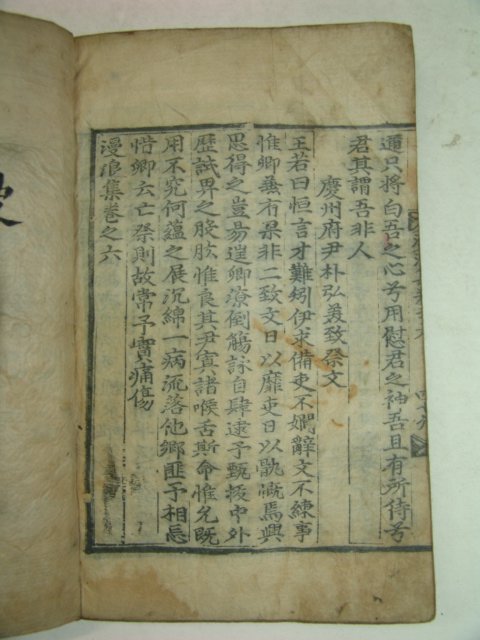 邇只將白吾之心兮用慰君之神吾且有所待兮
君其謂吾非人
慶州府尹朴弘美致祭文
王若曰恒言才難矧伊求備吏不嫺辭文不練事
惟卿無有是非二致文日以靡吏日以骩慨焉興
思得之豈易逞卿潦倒觴詠自肆逮予甄拔中外
歷試畀之股肱惟良其尹寘諸喉舌斯命惟允旣
用不究何蘊之展沉綿一病流落他鄉匪予相忘
惜卿云亡祭則故常予實痛傷
漫浪集卷之六